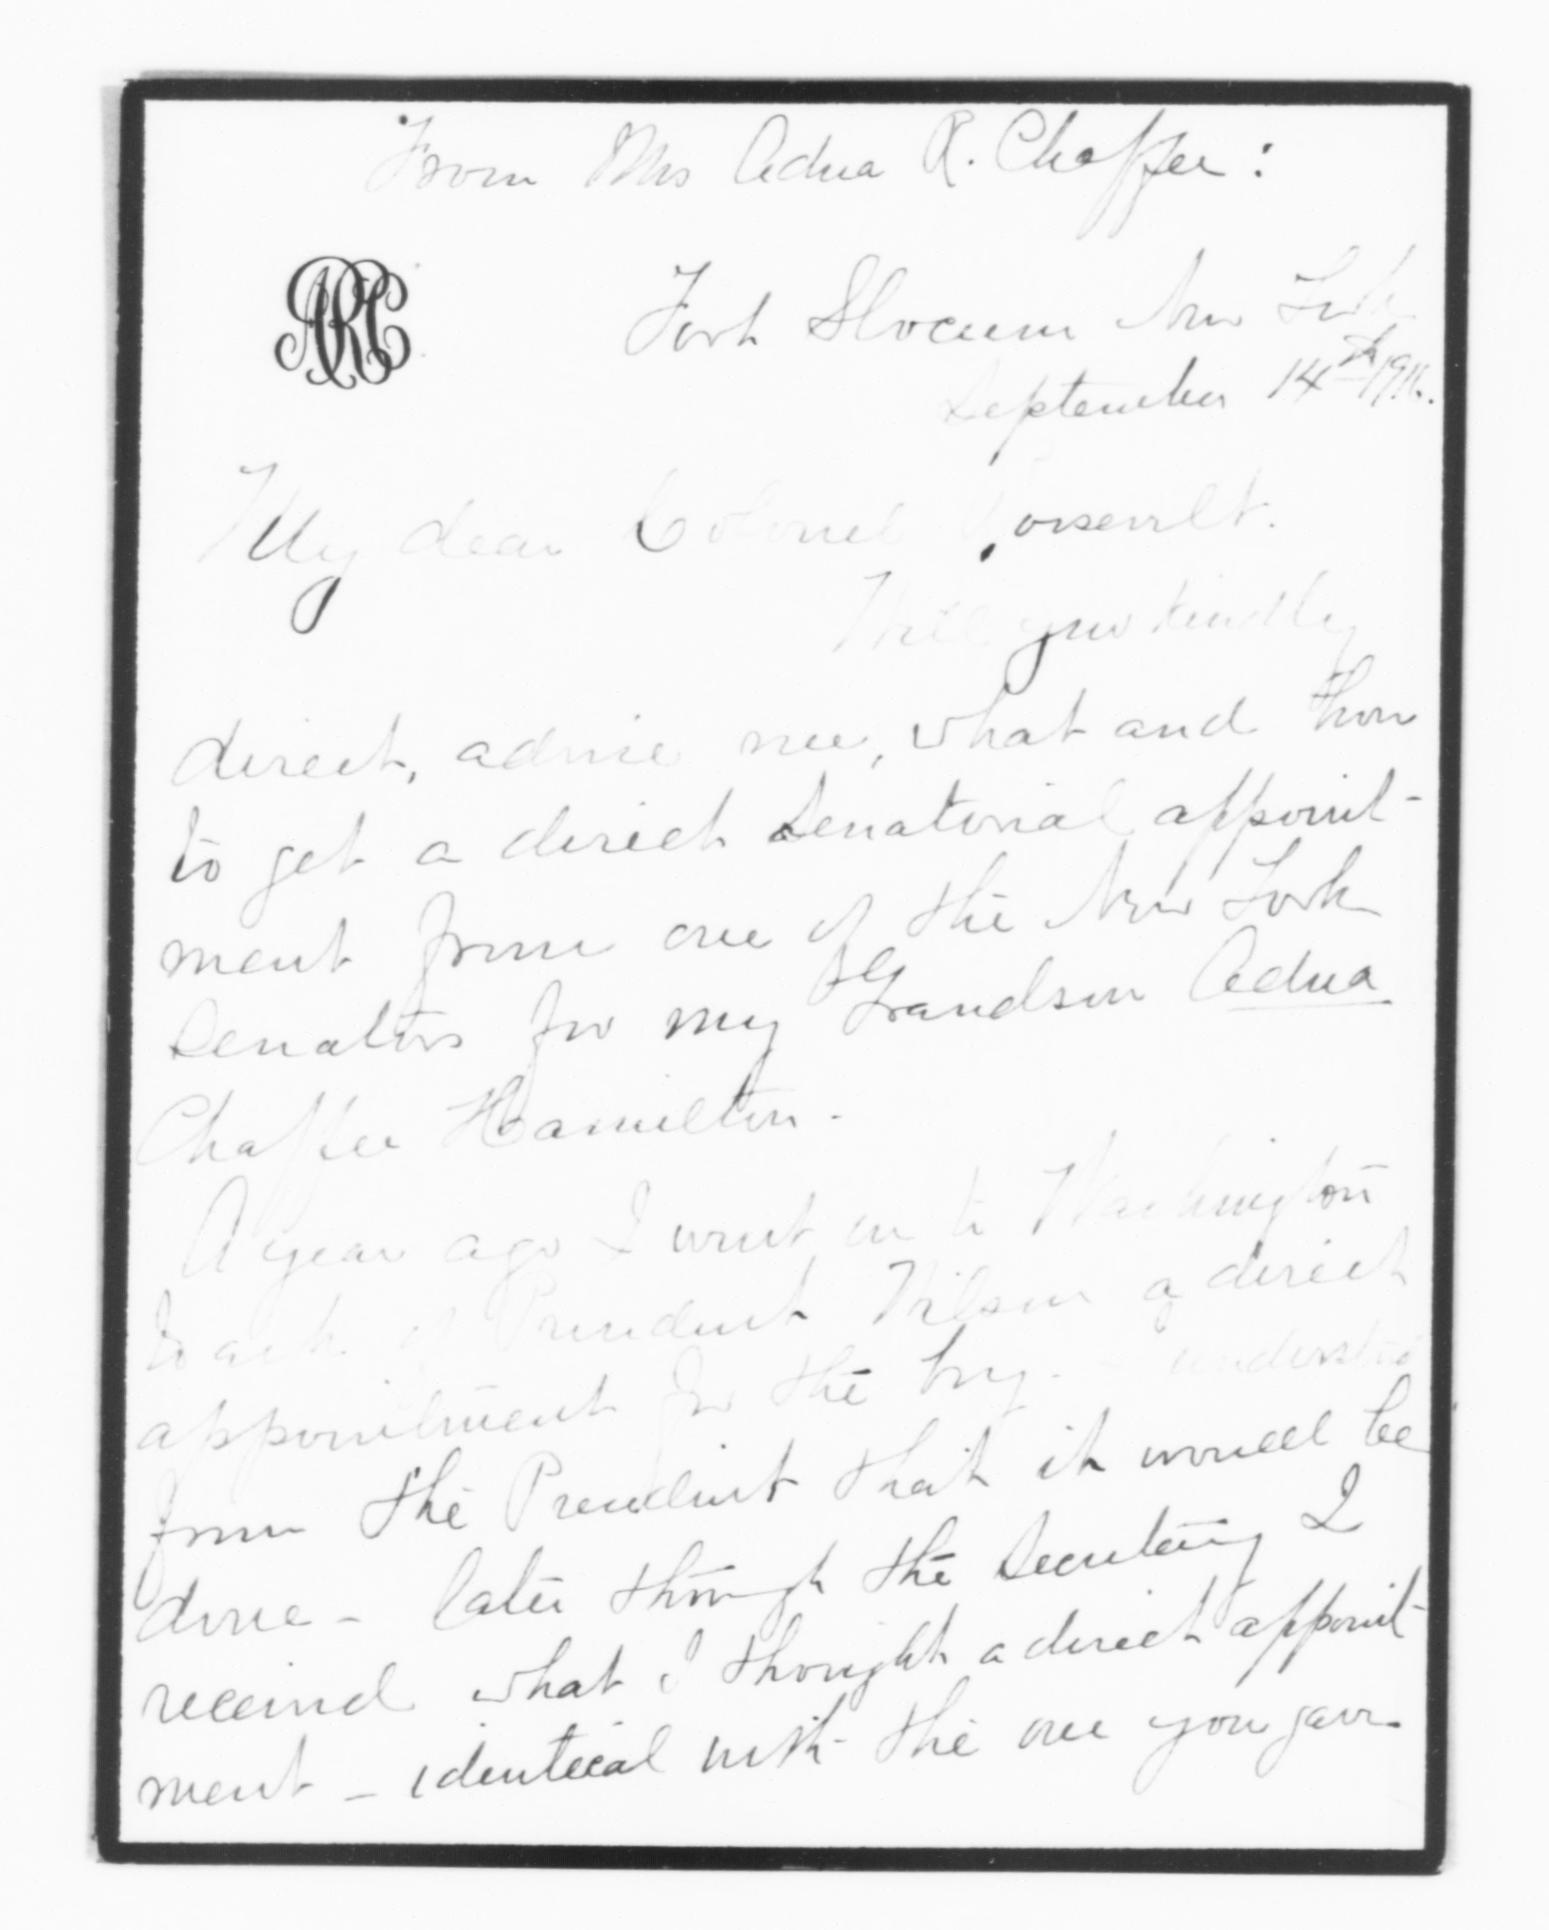 From Mrs Adna R. Chaffee:
ARC
Fort Slocum New York
September 14th 1916.
My dear Colonel Roosevelt.
Will you kindly
direct, advise me, what and how
to get a direct Senatorial appoint-
ment from one of the New York
Senators for my Grandson Adna
Chaffee Hamilton -
A year ago I went on to Washington
to ask of President Wilson a direct
appointment for the boy - understood
from the President that it would be
done - later through the Secretary I
received what I thought a direct appoint-
ment - identical with the one you gave